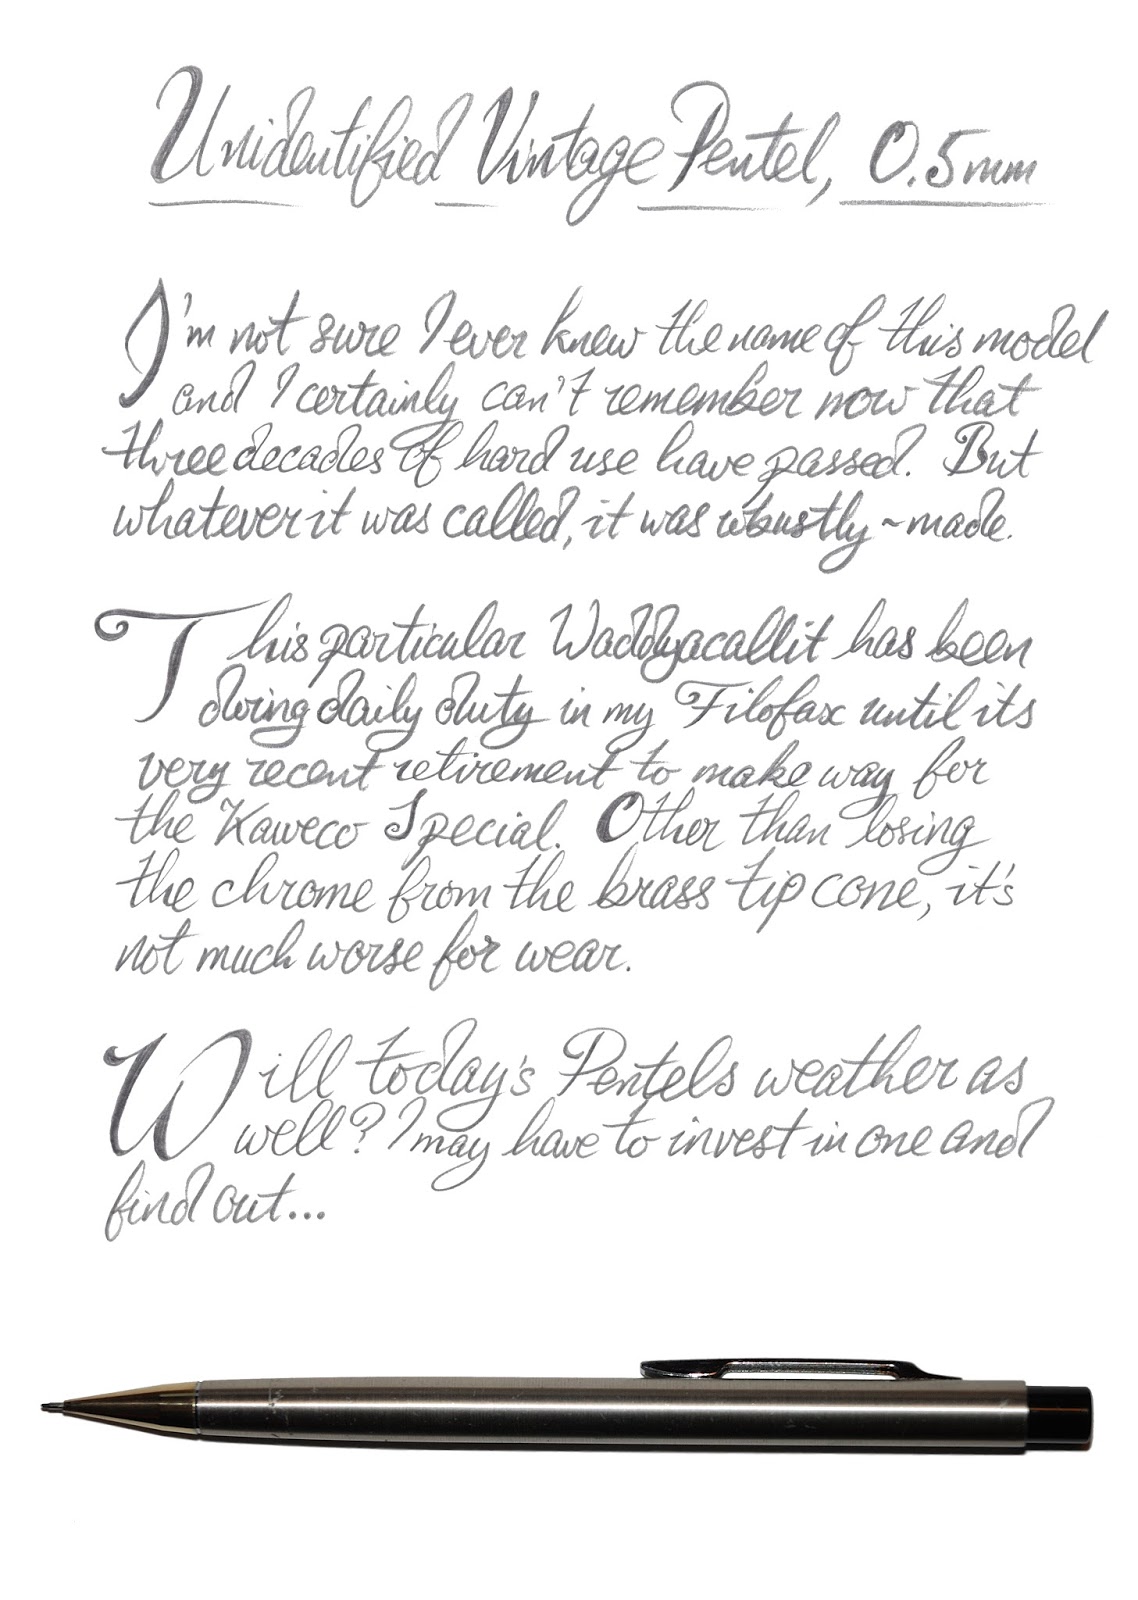 Unidentified Vintage Pentel, 0.5mm
I'm not sure I ever knew the name of this model
and I certainly can't remember now that
three decades of hard use have passed. But
whatever it was called, it was robustly-made.
This particular Waddyacallit has been
doing daily duty in my Filofax until its
very recent retirement to make way for
the Kaweco Special. Other than losing
the chrome from the brass tip cone, it's
not much worse for wear.
Will today's Pentels weather as
well? I may have to invest in one and
find out...